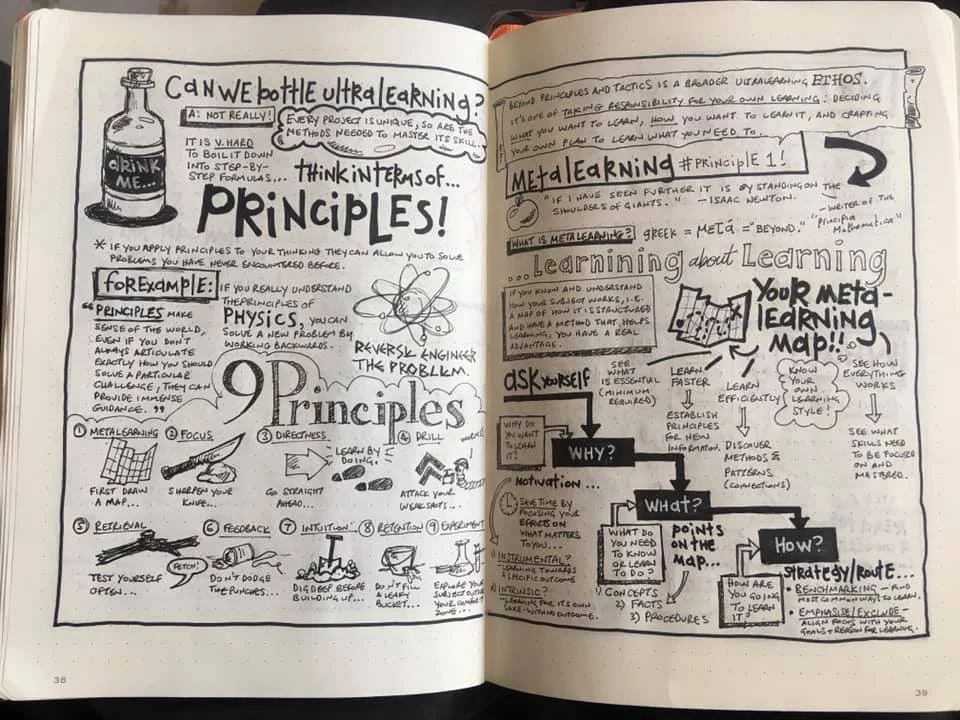 Can we bottle ultralearning?
A: NOT REALLY!
IT IS V. HARD
TO BOIL IT DOWN
INTO STEP-BY-
STEP FORMULAS...
EVERY PROJECT IS UNIQUE, SO ARE THE
METHODS NEEDED TO MASTER ITS SKILL.
DRINK
ME...
THINK IN TERMS OF...
PRINCIPLES!
* IF YOU APPLY PRINCIPLES TO YOUR THINKING THEY CAN ALLOW YOU TO SOLVE
PROBLEMS YOU HAVE NEVER ENCOUNTERED BEFORE.
for Example:
IF YOU REALLY UNDERSTAND
THE PRINCIPLES OF
PHYSICS, YOU CAN
SOLVE A NEW PROBLEM BY
WORKING BACKWARDS.
REVERSE ENGINEER
THE PROBLEM.
"PRINCIPLES MAKE
SENSE OF THE WORLD,
EVEN IF YOU DON'T
ALWAYS ARTICULATE
EXACTLY HOW YOU SHOULD
SOLVE A PARTICULAR
CHALLENGE, THEY CAN
PROVIDE IMMENSE
GUIDANCE."
9 Principles
① METALEARNING
FIRST DRAW
A MAP...
② FOCUS
SHARPEN YOUR
KNIFE...
③ DIRECTNESS
LEARN BY
DOING.
GO STRAIGHT
AHEAD...
④ DRILL
ATTACK YOUR
WEAK SPOTS...
⑤ RETRIEVAL
TEST YOURSELF
OFTEN...
FETCH!
⑥ FEEDBACK
DON'T DODGE
THE PUNCHES...
⑦ INTUITION
DIG DEEP BEFORE
BUILDING UP...
⑧ RETENTION
DON'T FILL
A LEAKY
BUCKET...
⑨ EXPERIMENT
EXPLORE YOUR
SUBJECT OUTSIDE
YOUR COMFORT
ZONE...
38
BEYOND PRINCIPLES AND TACTICS IS A BROADER ULTRALEARNING ETHOS.
IT'S ONE OF TAKING RESPONSIBILITY FOR YOUR OWN LEARNING: DECIDING
WHAT YOU WANT TO LEARN, HOW YOU WANT TO LEARN IT, AND CRAFTING
YOUR OWN PLAN TO LEARN WHAT YOU NEED TO.
METALEARNING #PRINCIPLE 1!
"IF I HAVE SEEN FURTHER IT IS BY STANDING ON THE
SHOULDERS OF GIANTS." - ISAAC NEWTON.
- WRITER OF THE
"Principia
Mathematica"
WHAT IS METALEARNING? GREEK = META = "BEYOND."
...Learnining about Learning
IF YOU KNOW AND UNDERSTAND
HOW YOUR SUBJECT WORKS, I.E.
A MAP OF HOW IT IS STRUCTURED
AND HAVE A METHOD THAT HELPS
LEARNING, YOU HAVE A REAL
ADVANTAGE.
YOUR META-
LEARNING
MAP!!
SEE
WHAT
IS ESSENTIAL
(MINIMUM
REQUIRED)
LEARN
FASTER
ESTABLISH
PRINCIPLES
FOR NEW
INFORMATON.
LEARN
EFFICIENTLY
DISCOVER
METHODS &
PATTERNS
(CONNECTIONS)
KNOW
YOUR OWN
LEARNING
STYLE!
SEE HOW
EVERYTHING
WORKS
SEE WHAT
SKILLS NEED
TO BE FOCUSED
ON AND
MASTERED.
ask yourself
WHY DO YOU
WANT TO
LEARN IT?
WHY?
Motivation...
SAVE TIME BY
FOCUSING YOUR
EFFORTS ON
WHAT MATTERS
TO YOU...
1) INSTRUMENTAL?
- LEARNING TOWARDS
A SPECIFIC OUTCOME
2) INTRINSIC?
- LEARNING FOR ITS OWN
SAKE - WITH NO OUTCOME.
WHAT?
WHAT DO
YOU NEED
TO KNOW
OR LEARN
TO DO?
points
on the
map...
1) CONCEPTS
2) FACTS
3) PROCEDURES
HOW?
HOW ARE
YOU GOING
TO LEARN
IT?
strategy/route...
• BENCHMARKING - FIND
MOST COMMON WAYS TO LEARN.
• EMPHASISE/EXCLUDE -
ALIGN FOCUS WITH YOUR
GOALS + REASON FOR LEARNING.
39